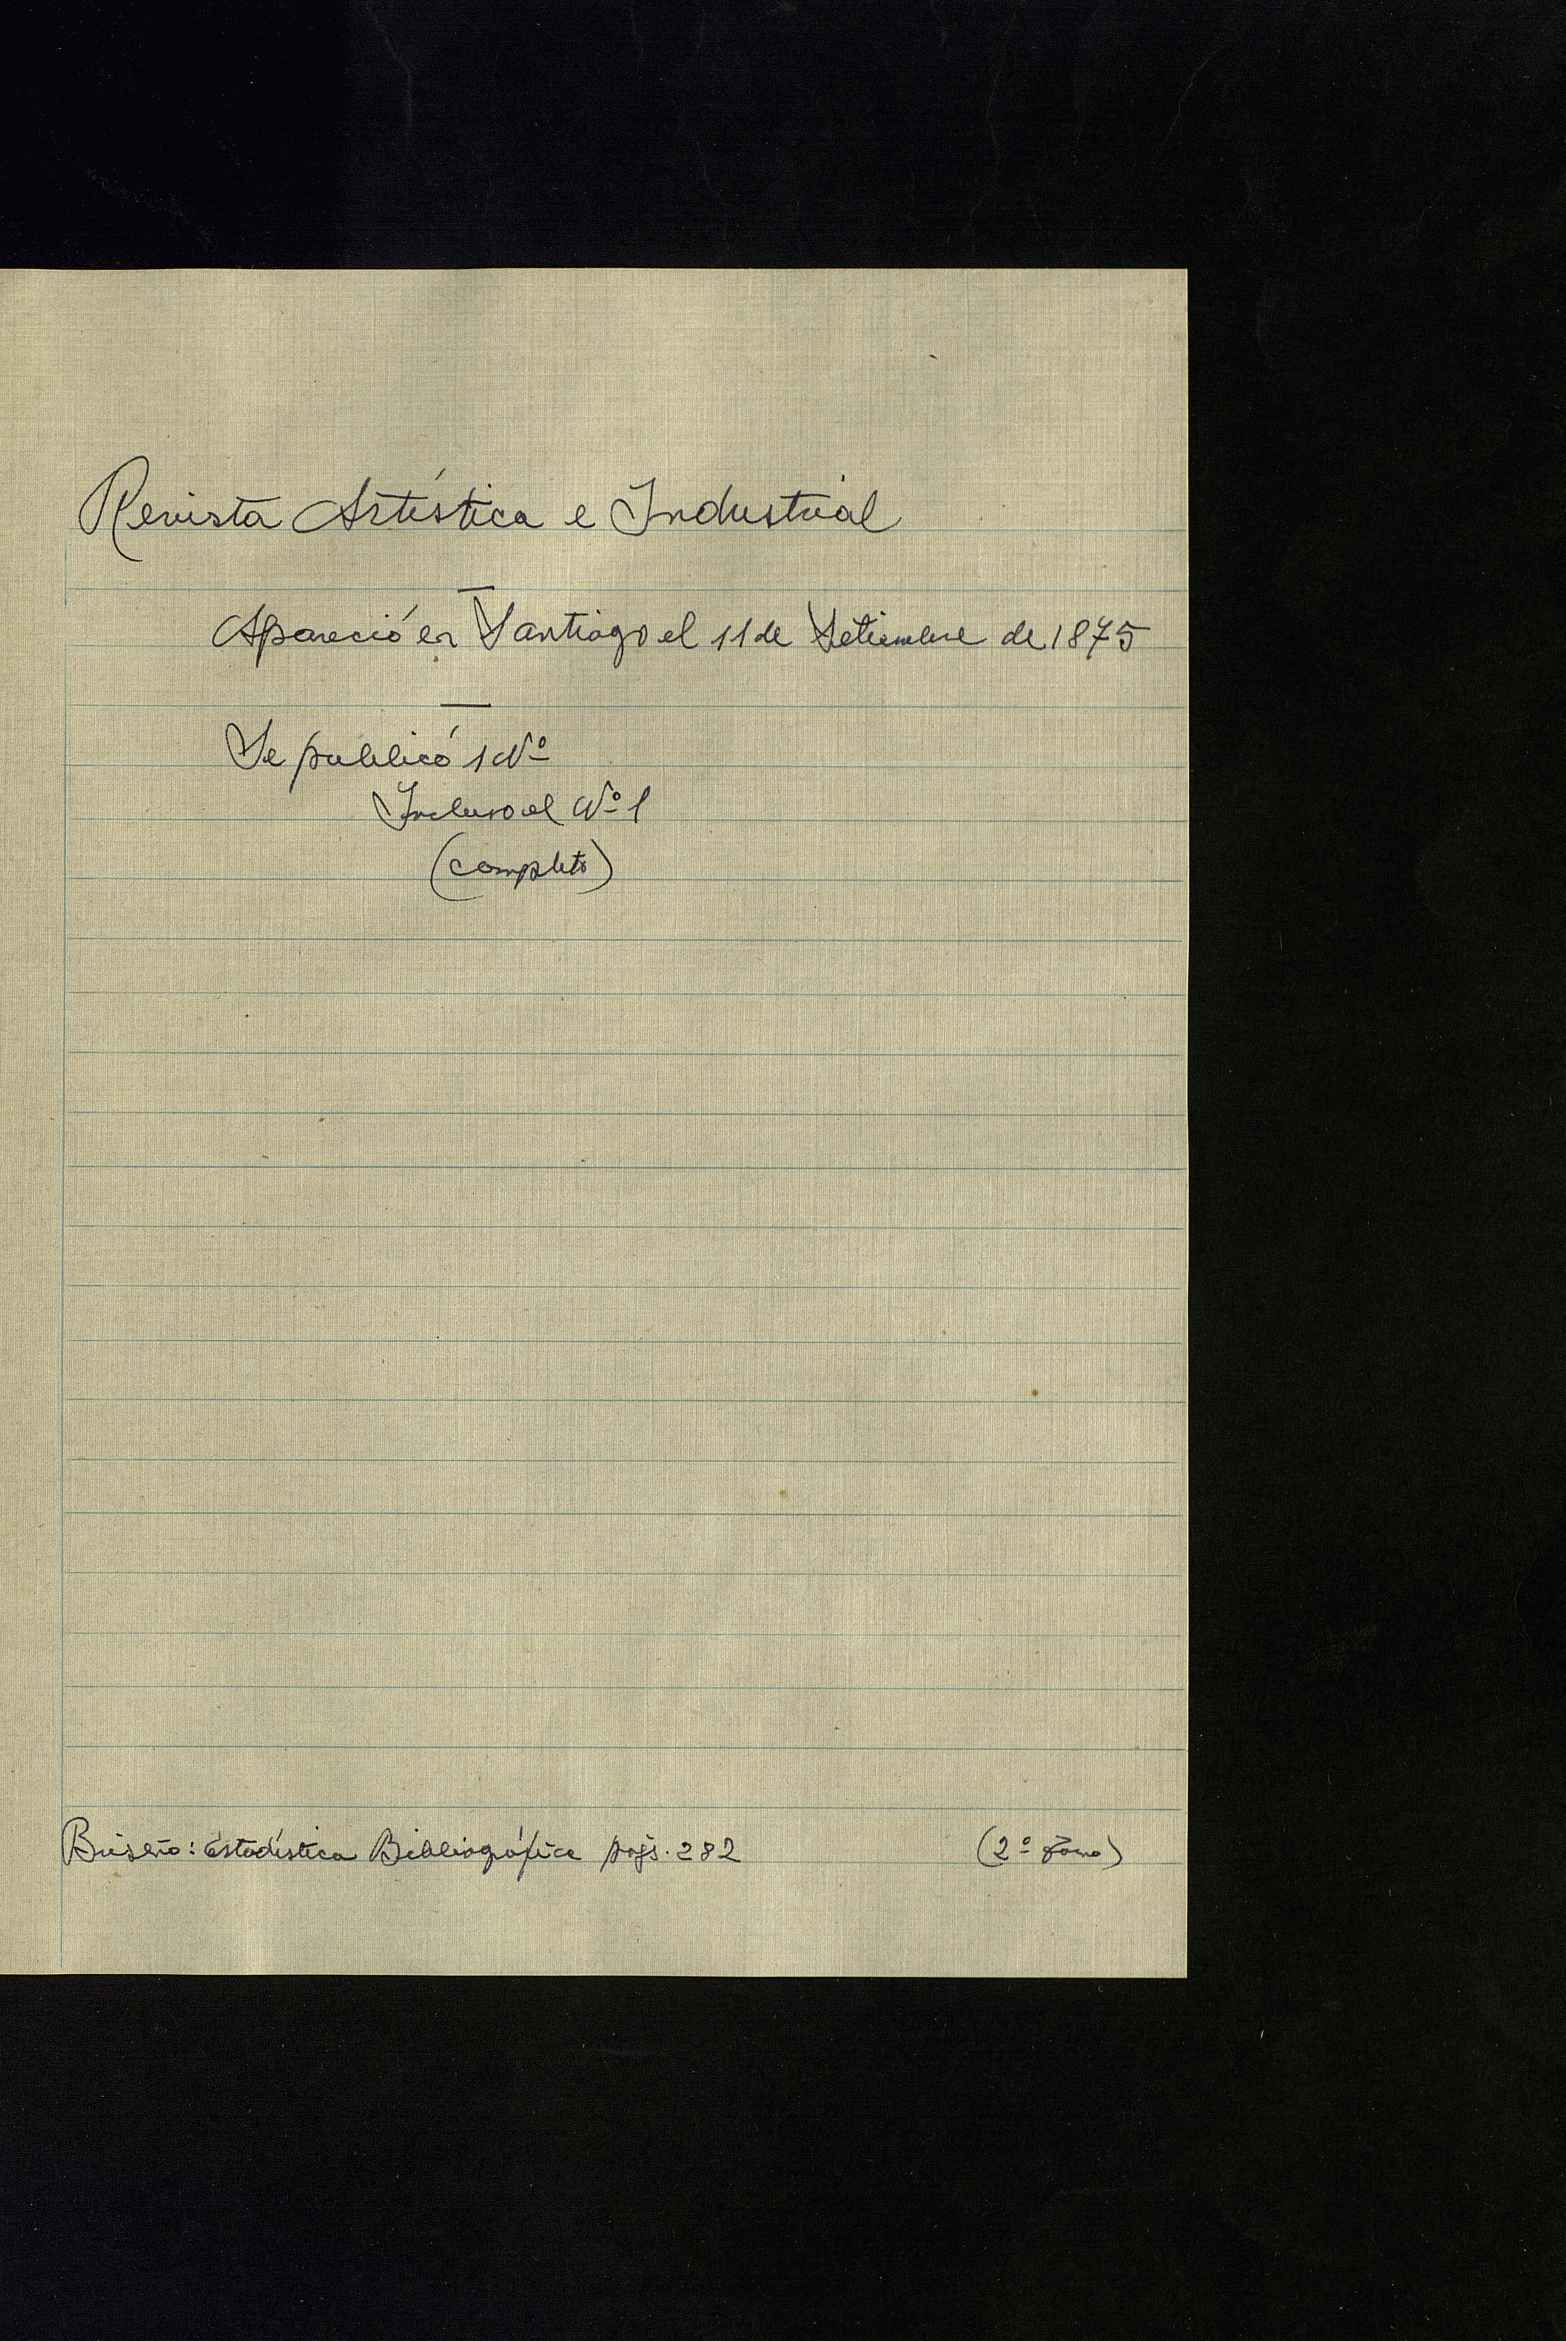 Revista Artística e Industrial
Apareció en Santiago el 11 de Setiembre de 1875
Se publicó 1 Nº
Incluso el Nº 1
(completo)
Briseño: Estadística Bibliográfica pags. 282 (2º tomo)